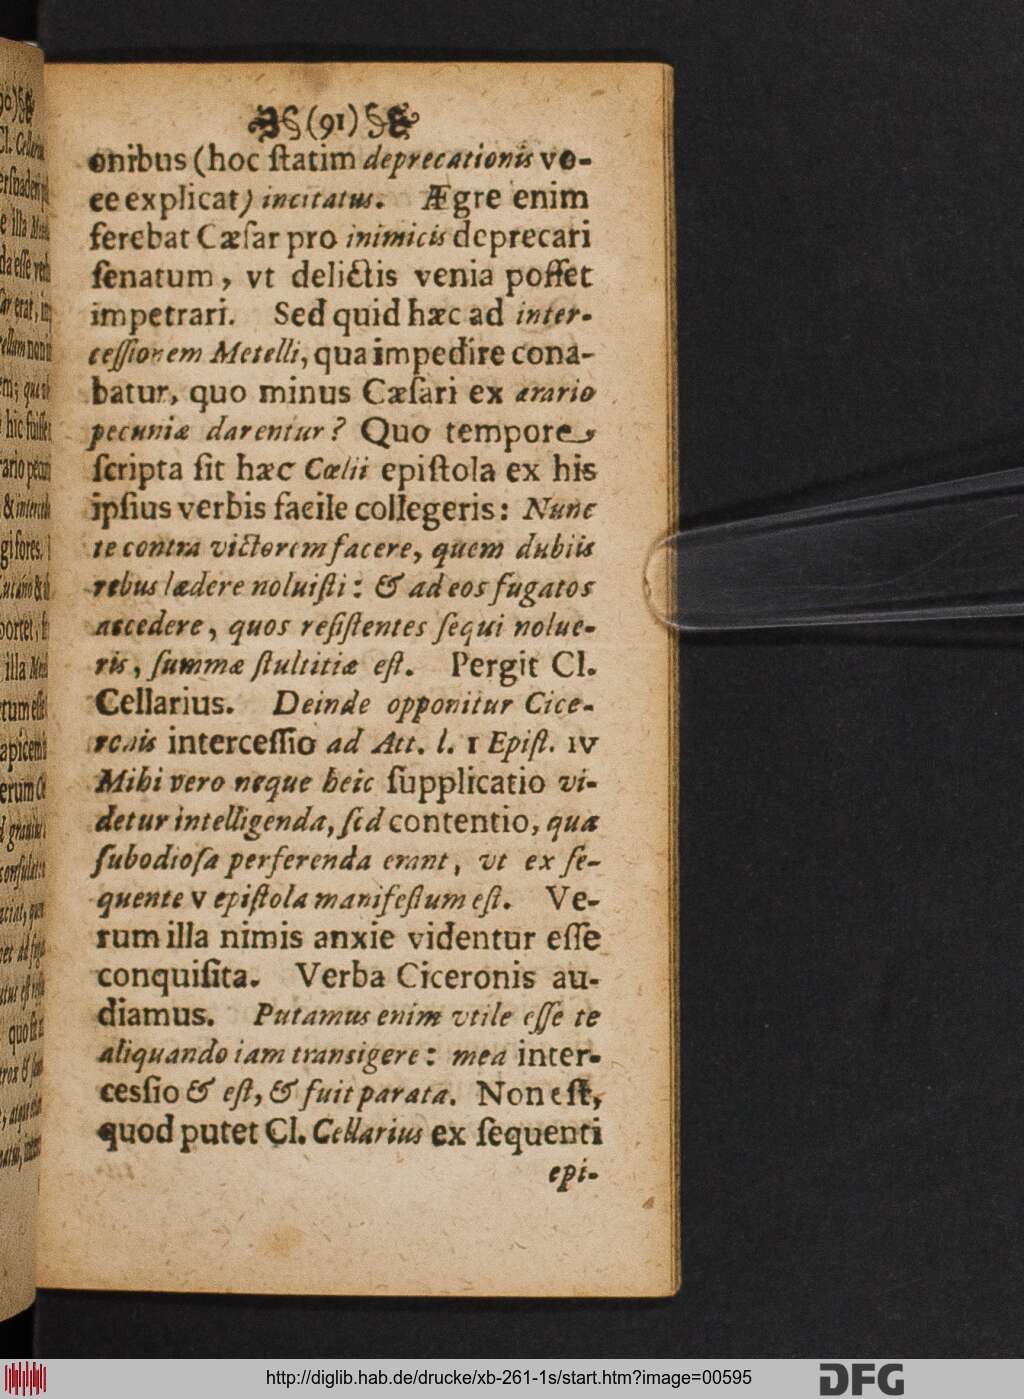 (91)
onibus (hoc ſtatim deprecationis vo-
ce explicat) incitatus. Ægre enim
ferebat Cæſar pro inimicis deprecari
ſenatum, vt delictis venia poſſet
impetrari. Sed quid hæc ad inter-
ceſſionem Metelli, qua impedire cona-
batur, quo minus Cæſari ex ærario
pecuniæ darentur? Quo tempore,
ſcripta ſit hæc Cœlii epiſtola ex his
ipſius verbis facile collegeris: Nunc
te contra victorem facere, quem dubiis
rebus lædere noluiſti: & ad eos fugatos
accedere, quos reſiſtentes ſequi nolue-
ris, ſummæ ſtultitiæ eſt. Pergit Cl.
Cellarius. Deinde opponitur Cice-
ronis interceſſio ad Att. l. I Epiſt. IV
Mihi vero neque heic ſupplicatio vi-
detur intelligenda, ſed contentio, quæ
ſubodioſa perferenda erant, vt ex ſe-
quente V epiſtola manifeſtum eſt. Ve-
rum illa nimis anxie videntur eſſe
conquiſita. Verba Ciceronis au-
diamus. Putamus enim vtile eſſe te
aliquando iam transigere: mea inter-
cessio & eſt, & fuit parata. Non eſt,
quod putet Cl. Cellarius ex ſequenti
epi-
http://diglib.hab.de/drucke/xb-261-1s/start.htm?image=00595
DFG